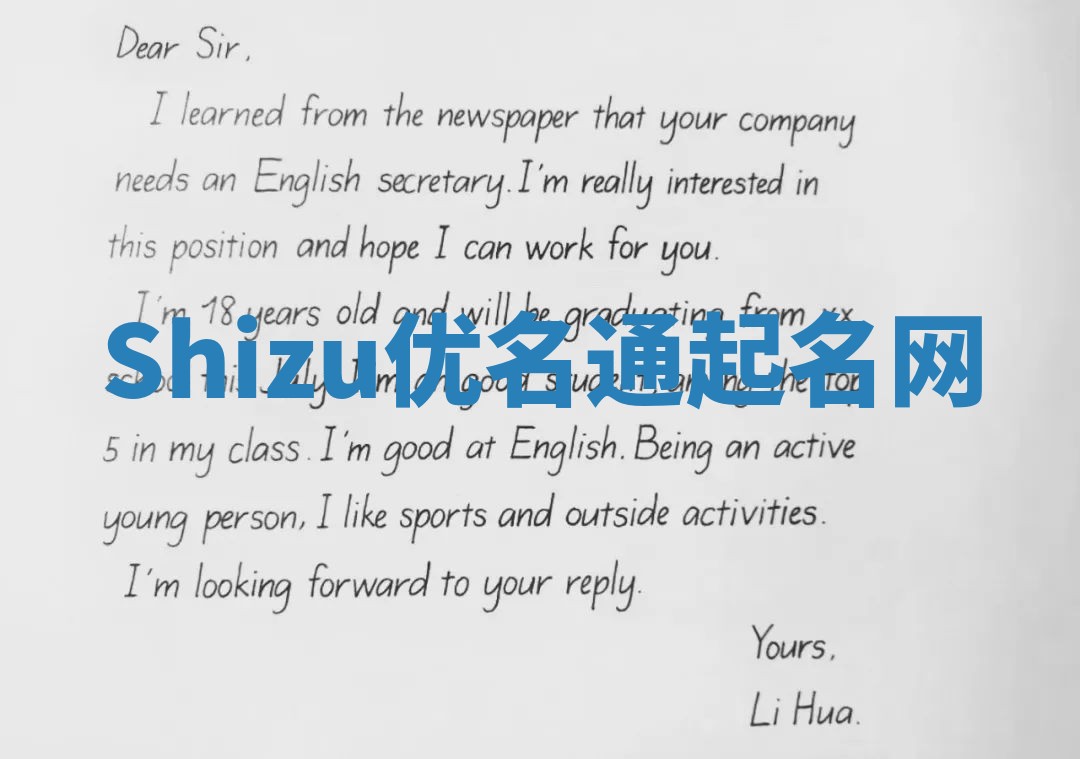 Dear Sir,
I learned from the newspaper that your company
needs an English secretary. I'm really interested in
this position and hope I can work for you.
I'm 18 years old and will be graduating from xx
Shizu优名通起名网
school this July. I'm a good student, among the top
5 in my class. I'm good at English. Being an active
young person, I like sports and outside activities.
I'm looking forward to your reply.
Yours,
Li Hua.